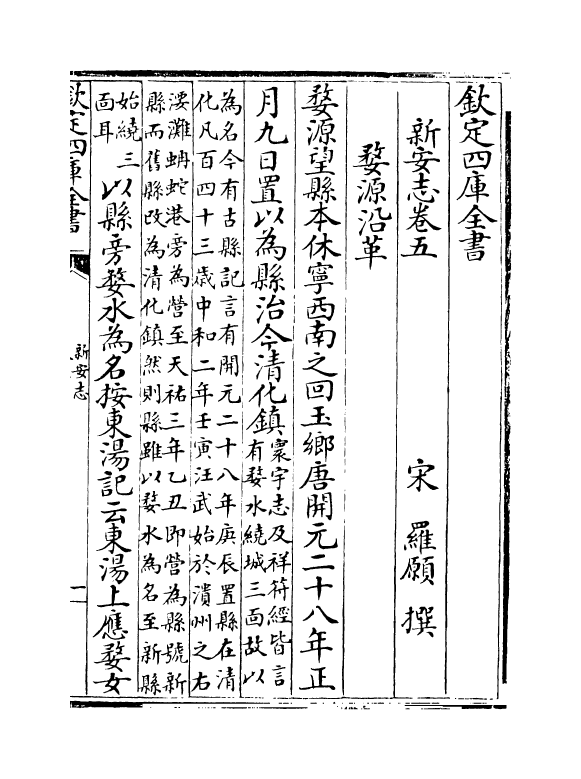 欽定四庫全書
新安志卷五
宋 羅願 撰
婺源沿革
婺源望縣本休寧西南之回玉鄉唐開元二十八年正
月九日置以為縣治今清化鎮
寰宇志及祥符經皆言
有婺水繞城三面故以
為名今有古縣記言有開元二十八年庚辰置縣在清
化凡百四十三歲中和二年壬寅汪武始於濆州之右
浸灘蚺蛇港旁為營至天祐三年乙丑即營為縣號新
縣而舊縣改為清化鎮然則縣雖以婺水為名至新縣
始繞三
面耳
以縣旁婺水為名按東湯記云東湯上應婺女
欽定四庫全書
新安志
一